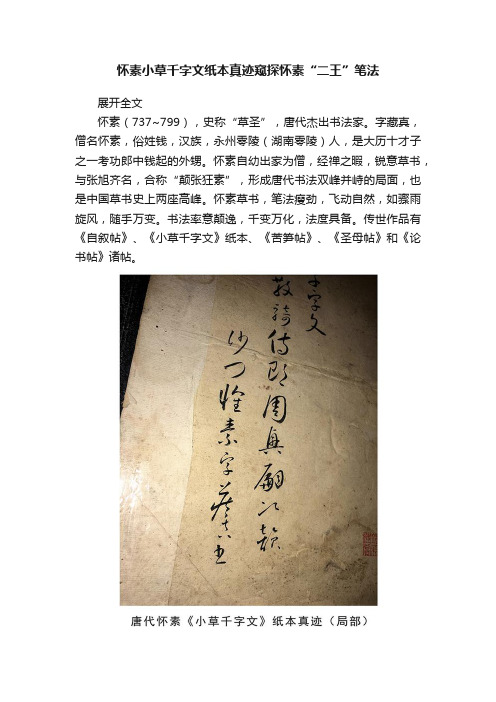 怀素小草千字文纸本真迹窥探怀素“二王”笔法
展开全文
怀素（737~799），史称“草圣”，唐代杰出书法家。字藏真，
僧名怀素，俗姓钱，汉族，永州零陵（湖南零陵）人，是大历十才子
之一考功郎中钱起的外甥。怀素自幼出家为僧，经禅之暇，锐意草书，
与张旭齐名，合称“颠张狂素”，形成唐代书法双峰并峙的局面，也
是中国草书史上两座高峰。怀素草书，笔法瘦劲，飞动自然，如骤雨
旋风，随手万变。书法率意颠逸，千变万化，法度具备。传世作品有
《自叙帖》、《小草千字文》纸本、《苦笋帖》、《圣母帖》和《论
书帖》诸帖。
千字文
散騎侍郎周興嗣次韻
沙门懷素字
唐代怀素《小草千字文》纸本真迹（局部）